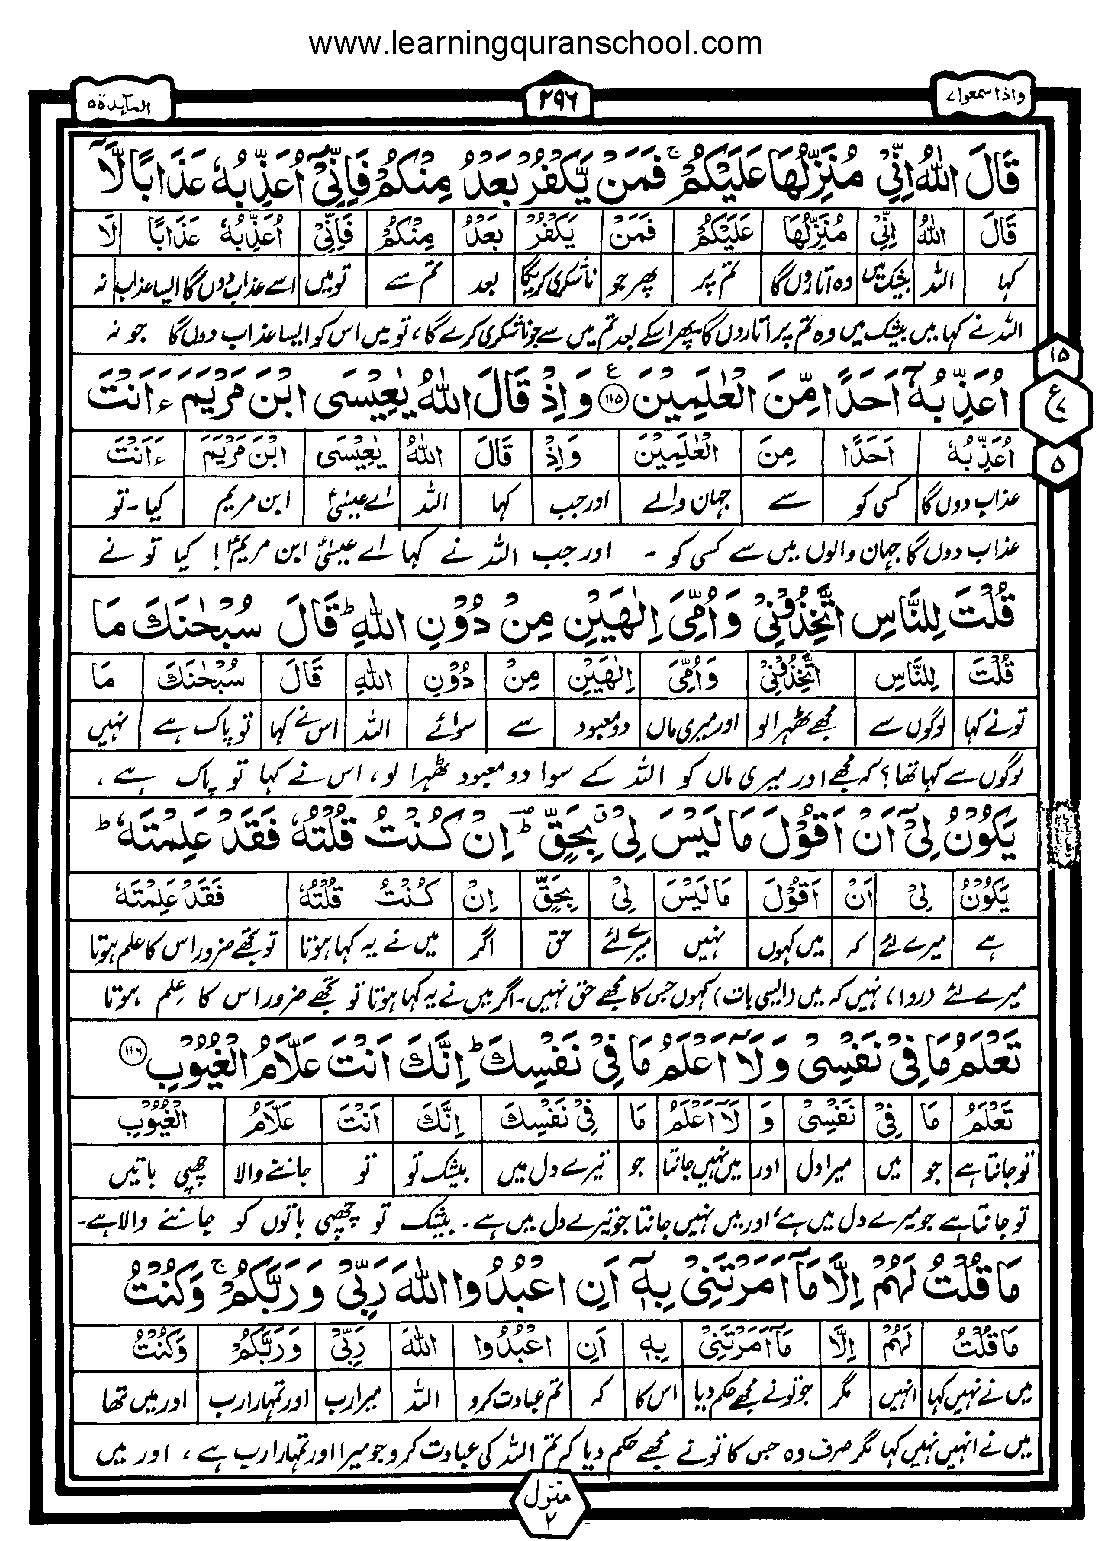 www.learningquranschool.com
واذا سمعوا ٧
٢٩٦
المآئدة ٥
قَالَ اللّٰهُ اِنِّیْ مُنَزِّلُهَا عَلَیْكُمْ ۚ فَمَنْ یَّكْفُرْ بَعْدُ مِنْكُمْ فَاِنِّیْۤ اُعَذِّبُهٗ عَذَابًا لَّاۤ
قَالَ اللّٰهُ اِنِّیْ مُنَزِّلُهَا عَلَیْكُمْ فَمَنْ یَكْفُرْ بَعْدُ مِنْكُمْ فَاِنِّیْ اُعَذِّبُهٗ عَذَابًا لَا
کہا اللہ بیشک میں وہ اتاروں گا تم پر پھر جو ناشکری کریگا بعد تم سے تو میں اسے عذاب دوں گا ایسا عذاب نہ
اللہ نے کہا میں بیشک میں وہ تم پر اتاروں گا پھر اسکے بعد تم میں سے جو ناشکری کرے گا، تو میں اس کو ایسا عذاب دوں گا جو نہ
١٥
اُعَذِّبُهٗۤ اَحَدًا مِّنَ الْعٰلَمِیْنَ ۠ ﴿١١٥﴾ وَاِذْ قَالَ اللّٰهُ یٰعِیْسَی ابْنَ مَرْیَمَ ءَاَنْتَ
ع ٧
اُعَذِّبُهٗ اَحَدًا مِنَ الْعٰلَمِیْنَ وَاِذْ قَالَ اللّٰهُ یٰعِیْسَی ابْنَ مَرْیَمَ ءَاَنْتَ
٥
عذاب دوں گا کسی کو سے جہان والے اور جب کہا اللہ اے عیسیٰؑ ابن مریم کیا۔ تو
عذاب دوں گا جہان والوں میں سے کسی کو ۔ اور جب اللہ نے کہا اے عیسیٰؑ ابن مریمؑ! کیا تو نے
قُلْتَ لِلنَّاسِ اتَّخِذُوْنِیْ وَاُمِّیَ اِلٰهَیْنِ مِنْ دُوْنِ اللّٰهِ ؕ قَالَ سُبْحٰنَكَ مَا
قُلْتَ لِلنَّاسِ اتَّخِذُوْنِیْ وَاُمِّیَ اِلٰهَیْنِ مِنْ دُوْنِ اللّٰهِ قَالَ سُبْحٰنَكَ مَا
تو نے کہا لوگوں سے مجھے ٹھہرا لو اور میری ماں دو معبود سے سوائے اللہ اس نے کہا تو پاک ہے نہیں
لوگوں سے کہا تھا؟ کہ مجھے اور میری ماں کو اللہ کے سوا دو معبود ٹھہرا لو، اس نے کہا تو پاک ہے،
یَكُوْنُ لِیْۤ اَنْ اَقُوْلَ مَا لَیْسَ لِیْ ۗ بِحَقٍّ ؔؕ اِنْ كُنْتُ قُلْتُهٗ فَقَدْ عَلِمْتَهٗ ؕ
یَكُوْنُ لِیْ اَنْ اَقُوْلَ مَا لَیْسَ لِیْ بِحَقٍّ اِنْ كُنْتُ قُلْتُهٗ فَقَدْ عَلِمْتَهٗ
ہے میرے لئے کہ میں کہوں نہیں میرے لئے حق اگر میں نے یہ کہا ہوتا تو تجھے ضرور اس کا علم ہوتا
میرے لئے (روا) نہیں کہ میں (ایسی بات) کہوں جس کا مجھے حق نہیں۔ اگر میں نے یہ کہا ہوتا تو تجھے ضرور اس کا علم ہوتا
تَعْلَمُ مَا فِیْ نَفْسِیْ وَلَاۤ اَعْلَمُ مَا فِیْ نَفْسِكَ ؕ اِنَّكَ اَنْتَ عَلَّامُ الْغُیُوْبِ ﴿١١٦﴾
تَعْلَمُ مَا فِیْ نَفْسِیْ وَ لَاۤ اَعْلَمُ مَا فِیْ نَفْسِكَ اِنَّكَ اَنْتَ عَلَّامُ الْغُیُوْبِ
تو جانتا ہے جو میں میرا دل اور میں نہیں جانتا جو تیرے دل میں بیشک تو تو جاننے والا چھپی باتیں
تو جانتا ہے جو میرے دل میں ہے، اور میں نہیں جانتا جو تیرے دل میں ہے۔ بیشک تو چھپی باتوں کو جاننے والا ہے۔
مَا قُلْتُ لَهُمْ اِلَّا مَاۤ اَمَرْتَنِیْ بِهٖۤ اَنِ اعْبُدُوا اللّٰهَ رَبِّیْ وَرَبَّكُمْ ۚ وَكُنْتُ
مَا قُلْتُ لَهُمْ اِلَّا مَاۤ اَمَرْتَنِیْ بِهٖ اَنِ اعْبُدُوا اللّٰهَ رَبِّیْ وَرَبَّكُمْ وَكُنْتُ
میں نے نہیں کہا انہیں مگر جو تو نے مجھے حکم دیا اس کا کہ تم عبادت کرو اللہ میرا رب اور تمہارا رب اور میں تھا
میں نے انہیں نہیں کہا مگر صرف وہ جس کا تو نے مجھے حکم دیا کہ تم اللہ کی عبادت کرو جو میرا اور تمہارا رب ہے، اور میں
منزل ٢